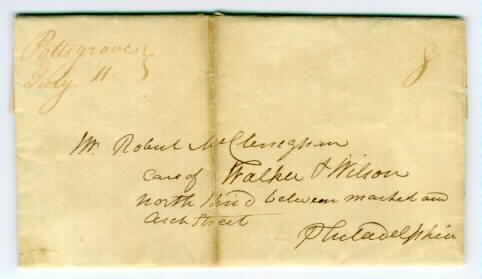 Pottsgrove
July 11
8
Mr Robert McCleneghan
Care of Walker & Wilson
North between market and
Arch Street
Philadelphia